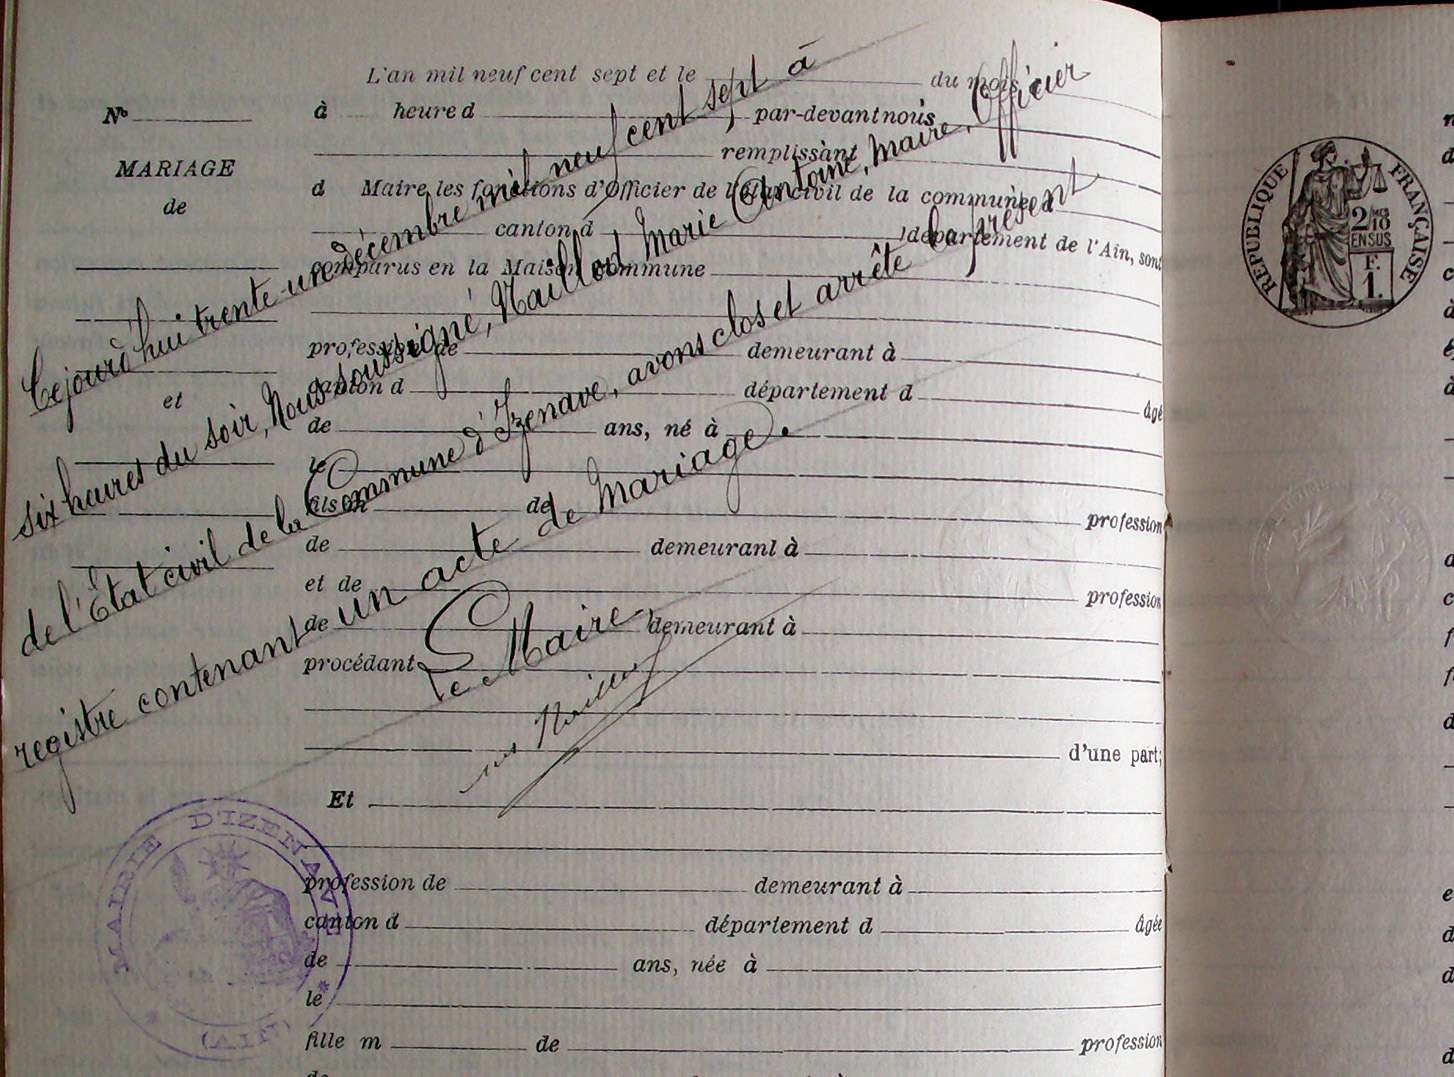 L'an mil neuf cent sept et le du mois
à heure d par-devant nous
remplissant
d Maire les fonctions d'Officier de l'état civil de la commune d
canton d département de l'Ain, sont
comparus en la Maison commune
profession de demeurant à
canton d département d âgé
de ans, né à
le
fils m de profession
de demeurant à
et de profession
de demeurant à
procédant
d'une part;
Et
profession de demeurant à
canton d département d âgée
de ans, née à
le
fille m de profession
No
MARIAGE
de
et
Cejourd'hui trente-un décembre mil neuf cent sept à
six heures du soir, Nous soussigné, Maillod Marie Antoine, Maire, Officier
de l'État civil de la Commune d'Izenave, avons clos et arrêté le présent
registre contenant un acte de mariage.
Le Maire,
MAIRIE D'IZENAVE
(AIN)
RÉPUBLIQUE FRANÇAISE
2/10
EN SUS
F.
1.